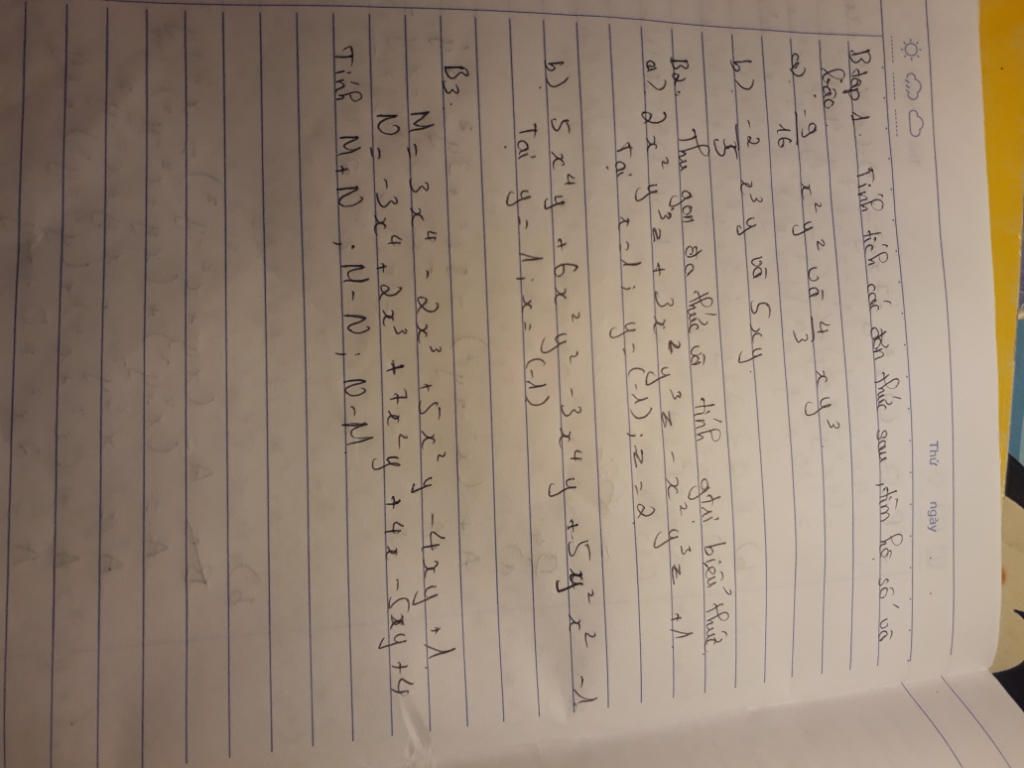 Thứ ngày
B tập 1. Tính tích các đơn thức sau, tìm hệ số và
bậc
a) -9/16 x² y² và 4/3 xy³.
b) -2/3 x³ y và 5xy.
B2. Thu gọn đa thức và tính gtrị biểu thức.
a) 2x² y³z + 3x² y³z - x² y³z + 1
Tại x=1; y=(-1); z=2
b) 5x⁴y + 6x² y² - 3x⁴y + 5y² x² - 1
Tại y=1; x=(-1)
B3.
M = 3x⁴ - 2x³ + 5x²y - 4xy + 1
N = -3x⁴ + 2x³ + 7x²y + 4x - 5xy + 4
Tính M+N; M-N; N-M